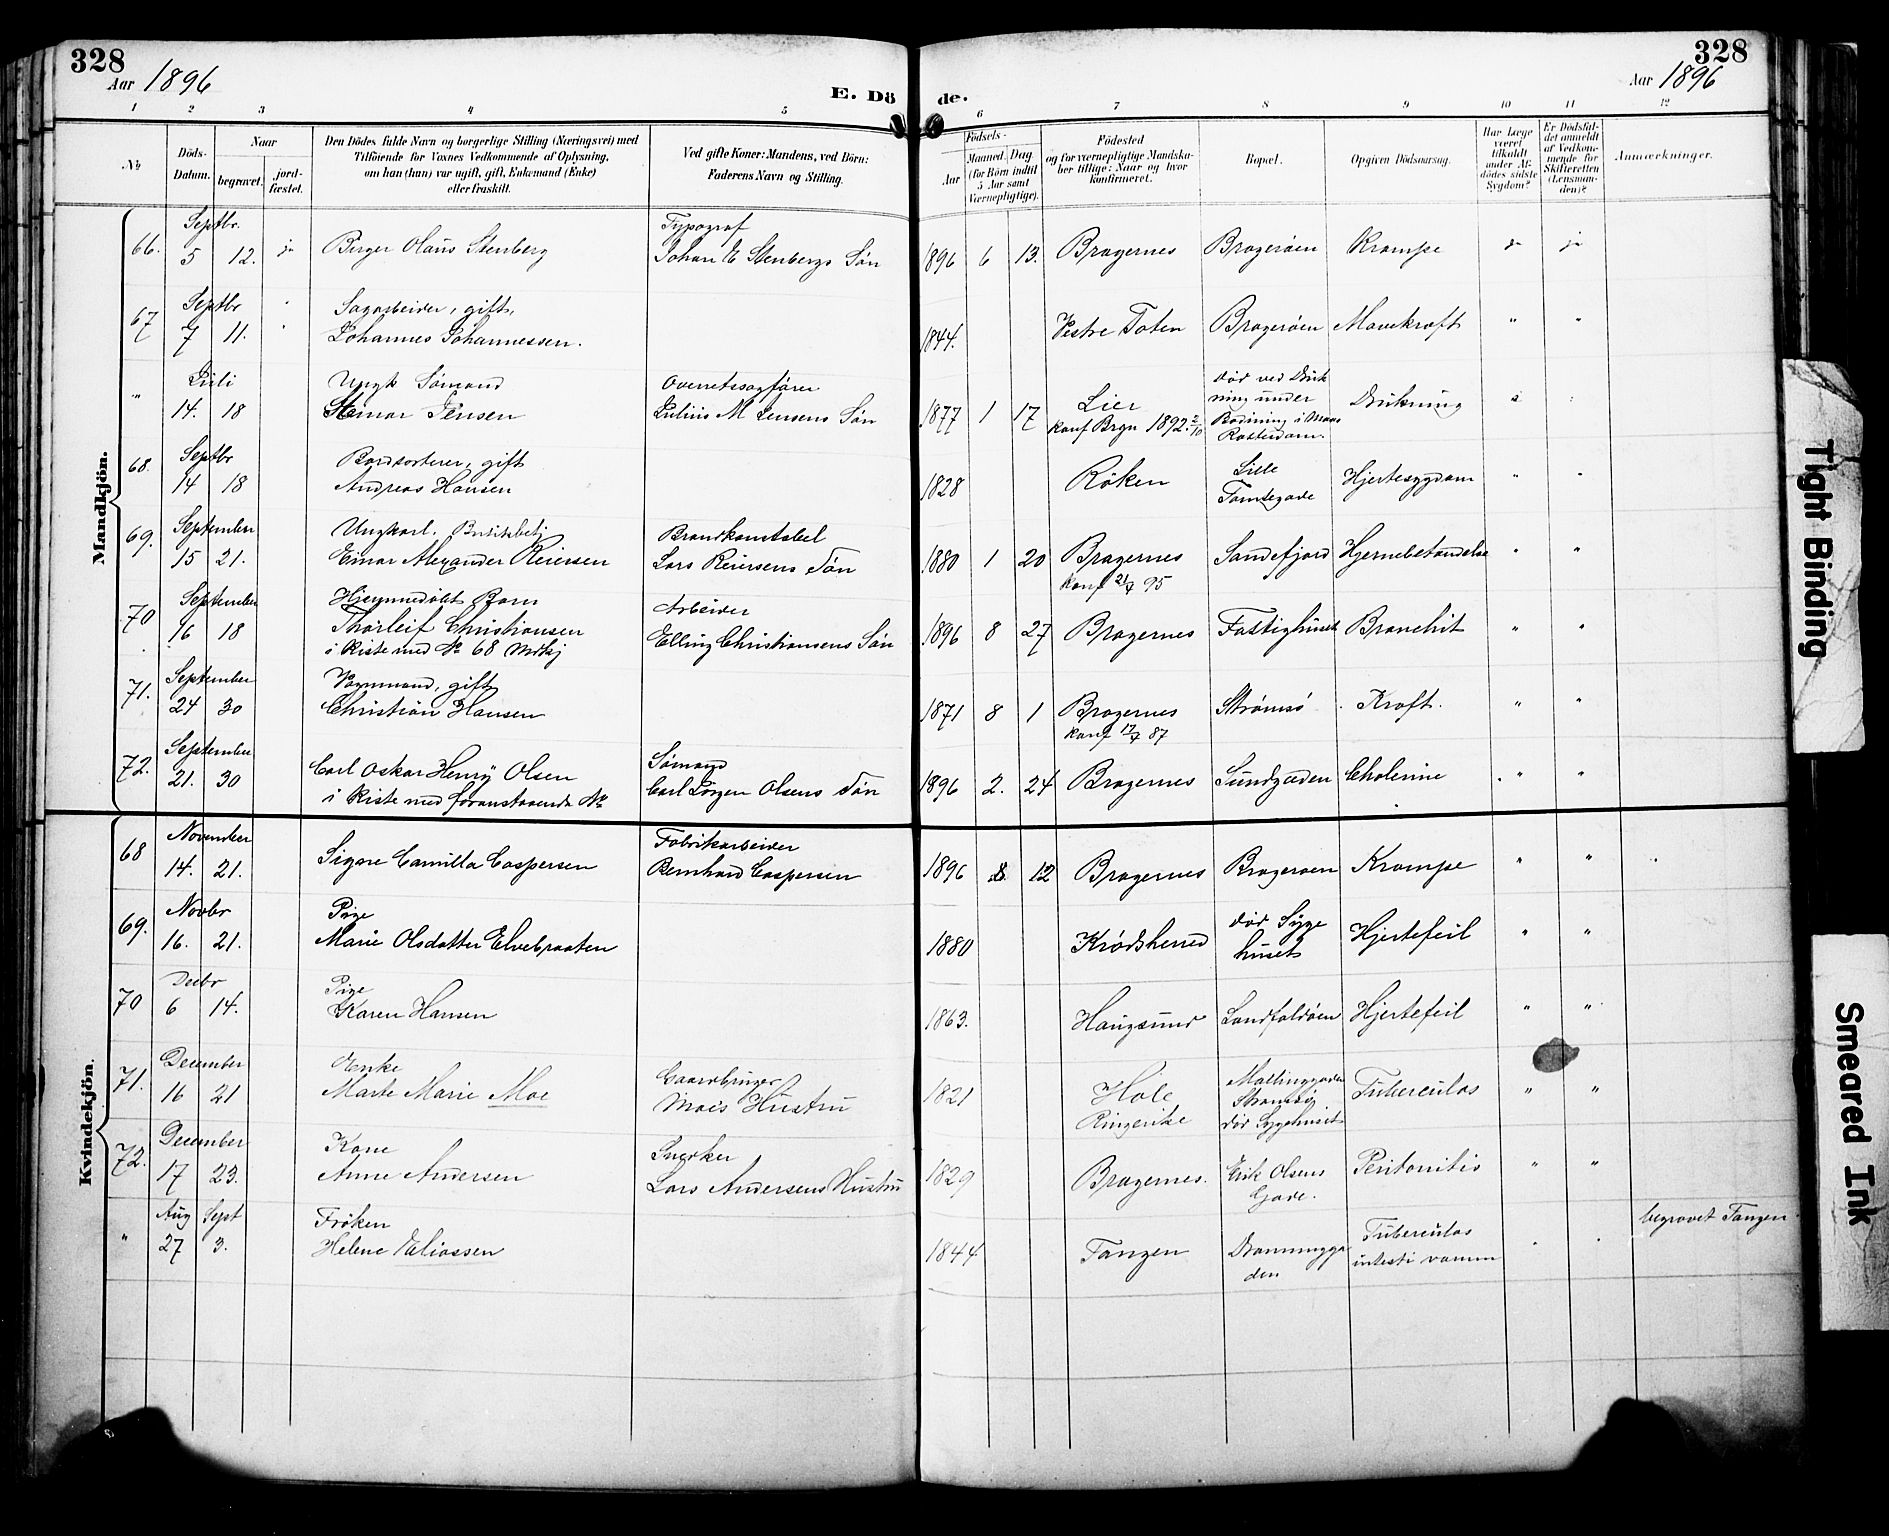 328
Aar 1896
E. Dö
de.
328
Aar 1896
1 2 3 4 5 6 7 8 9 10 11 12
No
Döds-Datum.
Naar
begravet.
jord-fæstet.
Den Dödes fulde Navn og borgerlige Stilling (Næringsvei) med
Tilföiende for Voxnes Vedkommende af Oplysning,
om han (hun) var ugift, gift, Enkemand (Enke)
eller fraskilt.
Ved gifte Koner: Mandens, ved Börn:
Faderens Navn og Stilling.
Födsels-
Aar
Maaned. Dag
(for Börn indtil
5 Aar samt
Værnepligtige).
Födested
og for værnepligtige Mandska-
ber tillige: Naar og hvor
konfirmeret.
Bopæl.
Opgiven Dödsaarsag.
Har Læge
været
tilkaldt
under Af-
dödes sidste
Sygdom?
Er Dödsfal-
det anmeldt
af Vedkom-
mende for
Skifteretten
(Lensman-
den)?
Anmærkninger.
Mandkjön.
Septbr. Typograf
66. 5 12. ja Birger Olaus Stenberg Johan E Stenbergs Søn 1896 6 13. Bragernes Bragerøen Krampe ja ja
Septbr " Sagarbeider, gift,
67 7 11. " Johannes Johannessen. 1844. Vestre Toten Bragerøen Mavekræft " "
Juli Ungk Sømand Overretssagfører død ved Druk
" 14. 18 Einar Jensen Julius M Jensens Søn 1877 1 17 Lier ning under Drukning
konf Brgn 1892 2/10 Badning i Maas
Rotterdam.
68. Septbr Bordsorterer, gift Lille
14 18 Andreas Hansen 1828 Røken Tomtegade Hjertesygdom " "
69. September Ungkarl. Brandkonstabel
15 21. Einar Alexander Reiersen Lars Reiersens Søn 1880 1 20 Bragernes Sandefjord Hjernebetændelse " "
konf 21/4 95
70 September Hjemmedøbt Barn Arbeider
16 18 Thorleif Christiansen Elling Christiansens Søn 1896 8 27 Bragernes Fattighuset Bronchit " "
i Kiste med No 68 Mdkj
71. September Vognmand, gift
24 30 Christian Hansen 1871 8 1 Bragernes Strømsø Kræft. " "
konf 17/4 87
72. September Sømand
21. 30 Carl Oskar Henry Olsen Carl Jørgen Olsens Søn 1896 2. 24 Bragernes Sundgaden Cholerine " "
i Kiste med foranstaaende No
Kvindekjön.
68 November Fabrikarbeider
14. 21. Signe Camilla Caspersen Bernhard Caspersen 1896 8. 12 Bragernes Bragerøen Krampe " "
69. Novbr Pige død Syge
16. 21. Marie Olsdatter Elvebraaten 1880 Krødsherred huset Hjertefeil " "
70 Decbr Pige
6 14. Karen Hansen 1863. Haugsund Landfaldøen Hjertefeil " "
71. December Enke Gaardbruger
16 21 Marte Marie Moe Moes Hustru 1821 Hole Tuberculos " "
Ringerike Strømsø
død Sygehuset
72. December Kone Snedker
17 23. Anne Andersen Lars Andersens Hustru 1829 Bragernes. Erik Olsens Peritonitis " "
Gade.
Aug Sept Frøken Tuberculos begravet Tangen
" 27 3. Helene Eliassen 1844 Tangen
den
Tight Binding
Smeared Ink